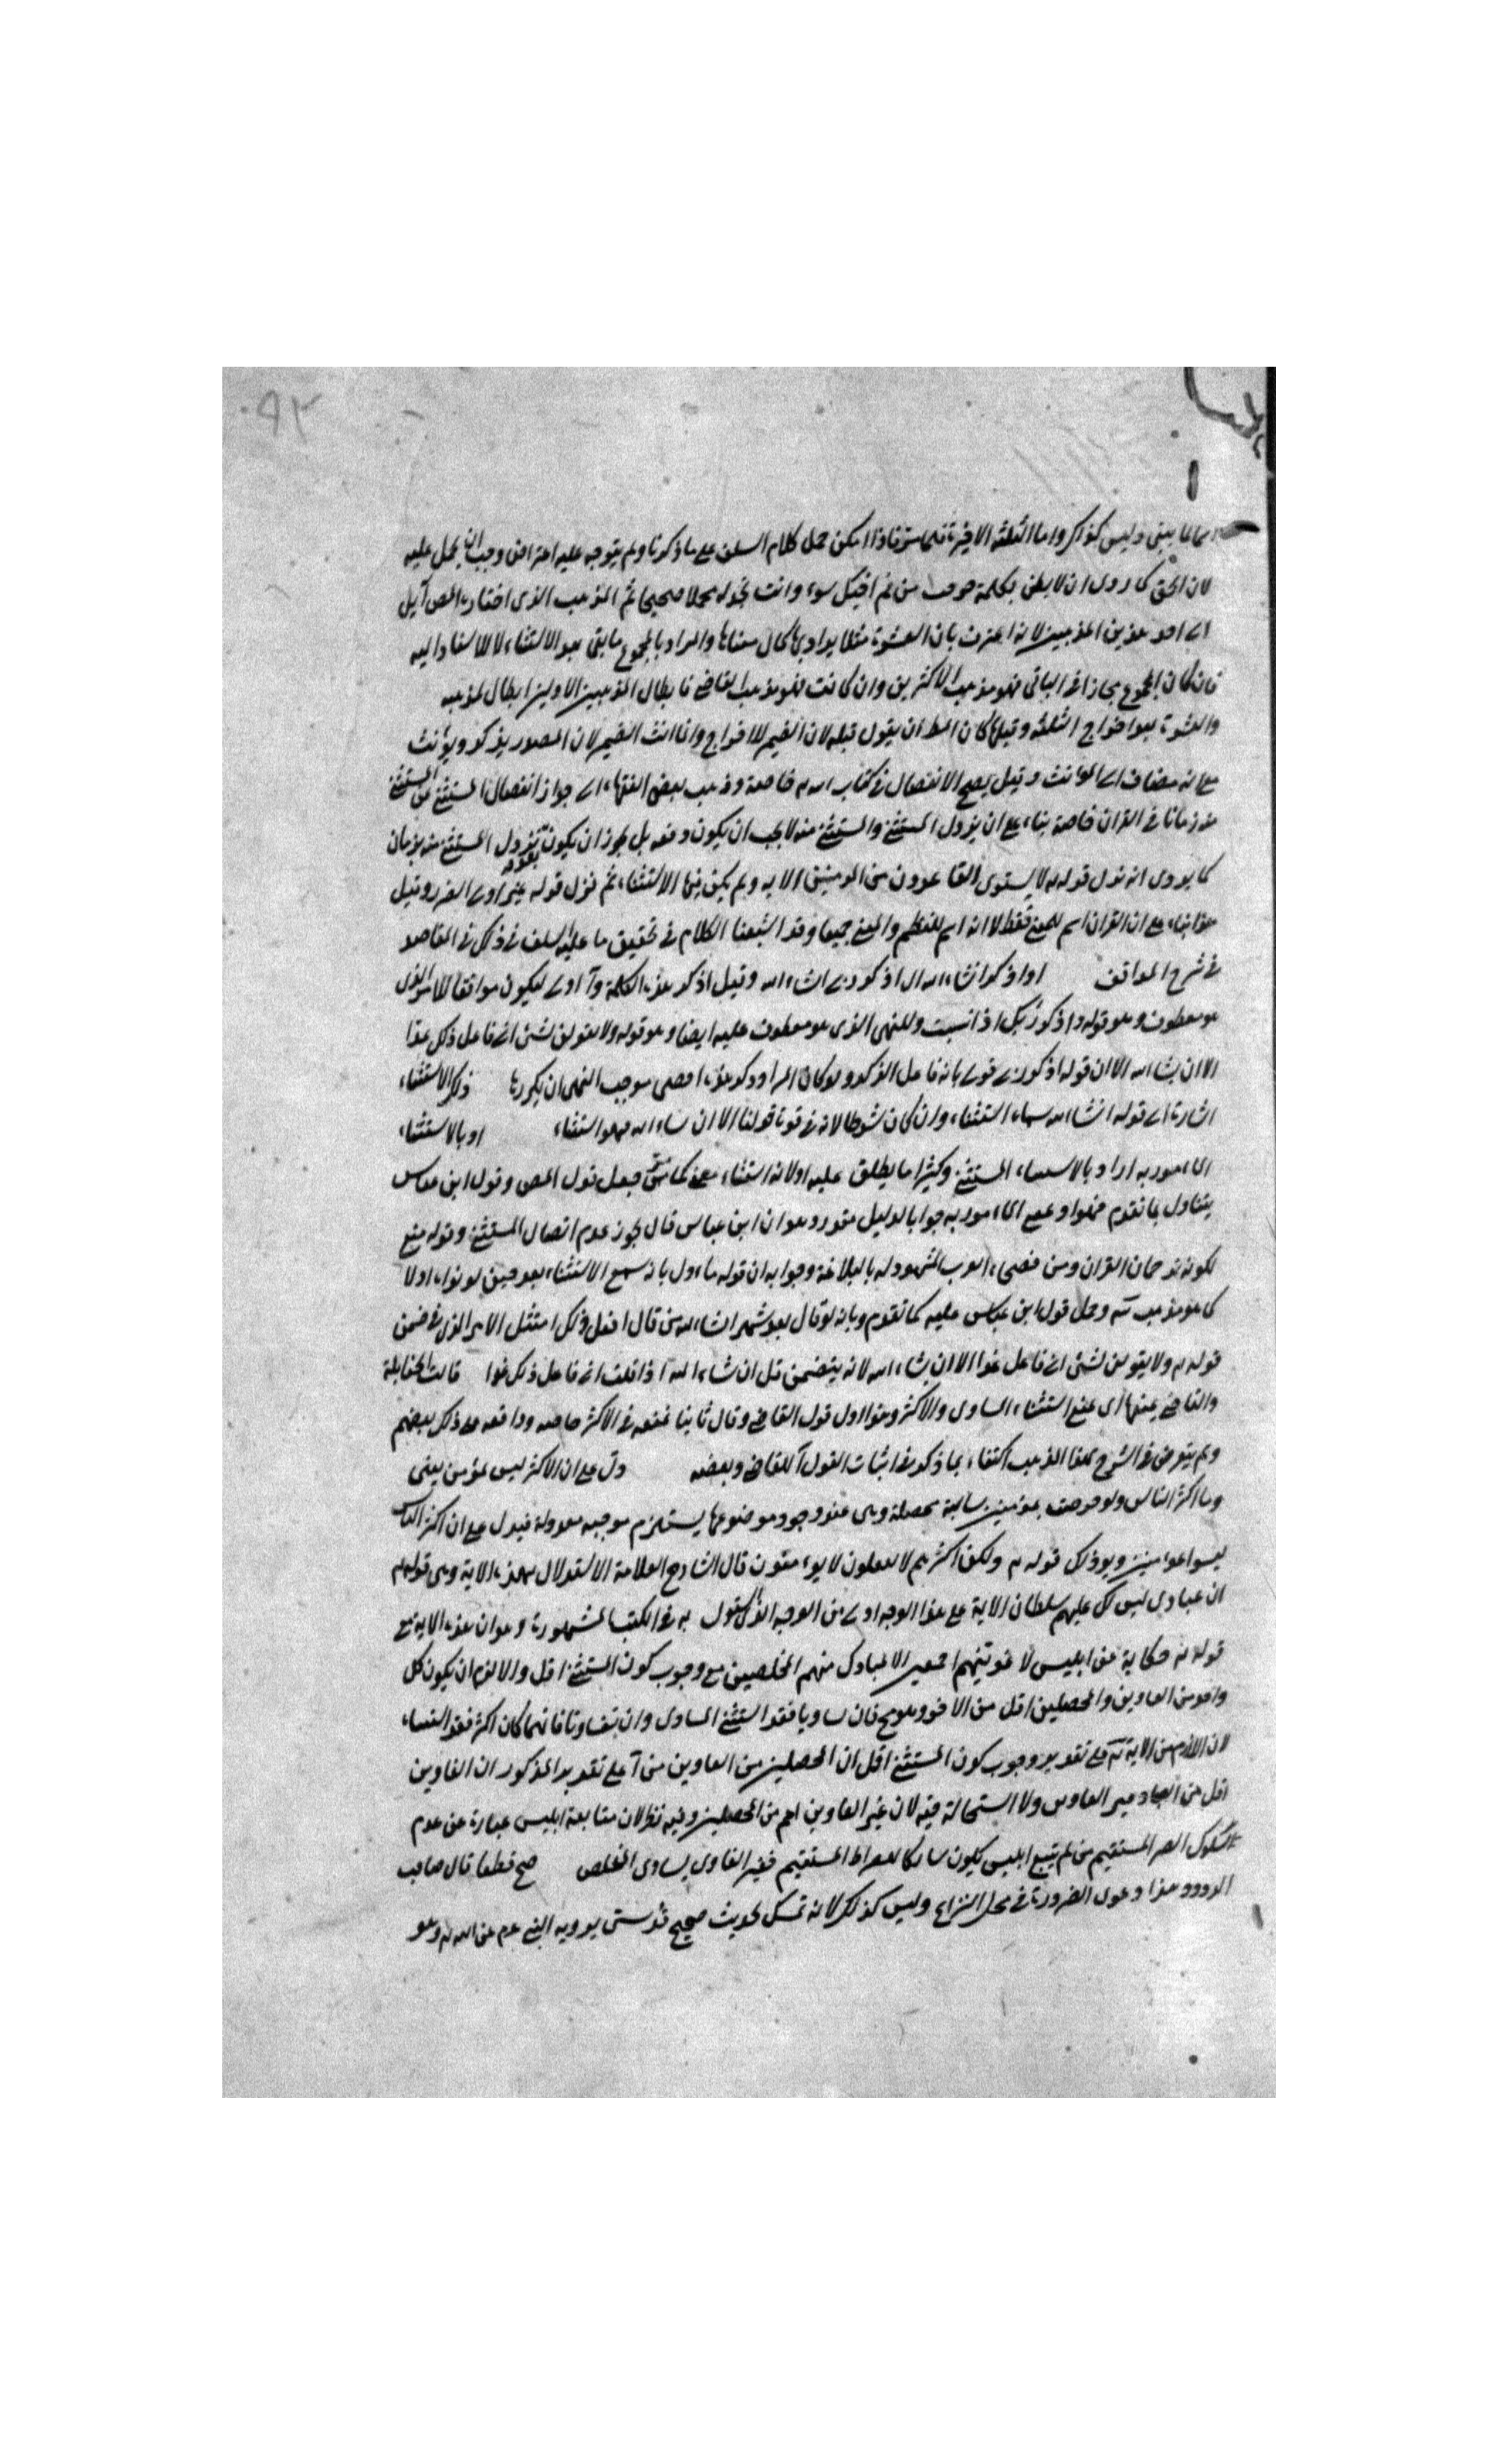 ٩٢
لما بقى وليس كذلك واما الثلثة الاخيرة فلما مر فاذا امكن حمل كلام السلف على ما ذكرنا ولم يتوجه عليه اعتراض وجب ان يحمل عليه
لان الحق كما روى ان لا يظن بكلمة خرجت من فم اخيك سوء وانت تجد له محملا صحيحا ثم المذهب الذى اختاره المص آيل
الى احد هذين المذهبين لانه اعترف بان العشرة مثلا يراد بها كمال معناها والمراد بالمجموع ما بقى بعد الاستثناء لا للاسناد اليه
فان كان المجموع مجازا فى الباقى فهو مذهب الاكثرين وان كانت فهو مذهب القاضى فابطال المذهبين الاولين ابطال لمذهبه
والعشرة بعد اخراج الثلثة وقبلها كان الظ ان يقول قبله لان الضمير للاخراج وانما انث الضمير لان المصدر يذكر ويؤنث
مع انه مضاف الى المؤنث وقيل يصح الانفصال فى كتاب الله خاصة وذهب بعض الفقهاء الى جواز انفصال المستثنى عن المستثنى
منه زمانا فى القران خاصة بناء على ان نزول المستثنى والمستثنى منه لا يجب ان يكون دفعه بل يجوز ان يكون نزول المستثنى منه بزمان
كما يروى انه نزل قوله لا يستوى القاعدون من المؤمنين الاية ولم يكن فيها الاستثناء ثم نزل قوله بعده غير اولى الضرر وقيل
هذا بناء على ان القران اسم للمعنى فقط لا انه اسم للنظم والمعنى جميعا وقد اشبعنا الكلام فى تحقيق ما عليه السلف فى ذلك فى المقاصد
فى شرح المواقف او اذكر انشاء الله اى اذكر ربى انشاء الله وقيل اذكر هذه الكلمة وآ اولى ليكون موافقا للامر الذى
هو معطوف وهو قوله واذكر ربك اذا نسيت وللنهى الذى هو معطوف عليه ايضا وهو قوله ولا تقولن لشئ انى فاعل ذلك غدا
الا ان يشاء الله الا ان قوله اذكر ربى قوى بانه فاعل الذكر ولو كان المراد ذكر هذه اقتضى موجب النهى ان يكررها ذلك الاستثناء
اشارة الى قوله انشاء الله سماه استثناء وان كان شرطا لانه فى قوة قولنا الا ان شاء الله فهو استثناء او بالاستثناء
المأمور به اراد بالاستثناء المستثنى وكثيرا ما يطلق عليه اولانه استثناء معنى كما مر فجعل قول المص وقول ابن عباس
يتناول بما تقدم المأمور به جوابا لدليل مقدر وهو ان ابن عباس قال يجوز عدم اتصال المستثنى وقوله متبع
لكونه ترجمان القران ومن فصحاء العرب المشهود له بالبلاغة وجوابه ان قوله ماول بانه سمع الاستثناء بعد حين لو نواه اولا
كما هو مذهب وحمل قول ابن عباس عليه كما تقدم وبانه لو قال بعد شهر انشاء الله من قال افعل ذلك امتثل الامر الذى فى ضمن
قوله ولا تقولن لشئ انى فاعل غدا الا ان يشاء الله لانه يتضمن قل ان شاء الله اذا قلت انى فاعل ذلك غدا قالت الحنابلة
والقاضى بمنعها اى بمنع استثناء المساوى والاكثر وهذا اول قول القاضى وقال ثانيا بمنعه فى الاكثر خاصه ووافقه على ذلك بعضهم
ولم يتعرض فى الشرح لهذا المذهب اكتفاء بما ذكر فى اثبات القول للقاضى وبعضه دل على ان الاكثر ليس بمؤمن يعنى
وما اكثر الناس ولو حرصت بمؤمنين سالبة محصلة وهى عند وجود موضوعها يستلزم موجبه معدولة فيدل على ان اكثر الناس
ليسوا بمؤمنين ويؤيد ذلك قوله ولكن اكثرهم لا يعلمون لا يؤمنون قال الشارح العلامة الاستدلال بهذه الاية وهى قوله
ان عبادى ليس لك عليهم سلطان الاية على هذا الوجه اولى من الوجه الذى استدل به فى الكتب المشهورة وهو ان هذه الاية مع
قوله حكاية عن ابليس لاغوينهم اجمعين الا عبادك منهم المخلصين مع وجوب كون المستثنى اقل والا لزم ان يكون كل
واحد من الغاوين والمخلصين اقل من الاخر وهو مح فان تساويا فقد استثنى المساوى وان تفاوتا فايهما كان اكثر فقد استثناه
لان اللازم من الاية على تقدير وجوب كون المستثنى اقل ان المخلصين من الغاوين من آ على تقدير المذكور ان الغاوين
اقل من العباد غير الغاوين ولا استحالة فيه لان غير الغاوين اعم من المخلصين وفيه نظر لان متابعة ابليس عبارة عن عدم
سلوك الصراط المستقيم من لم يتبع ابليس يكون سالكا للصراط المستقيم فغير الغاوى يساوى المخلص صح قطعا قال صاحب
الردود وهذا دعوى الضرورة فى محل النزاع وليس كذلك لانه تمسك بحديث صحيح قدسى يرويه النبى عم عن الله وهو